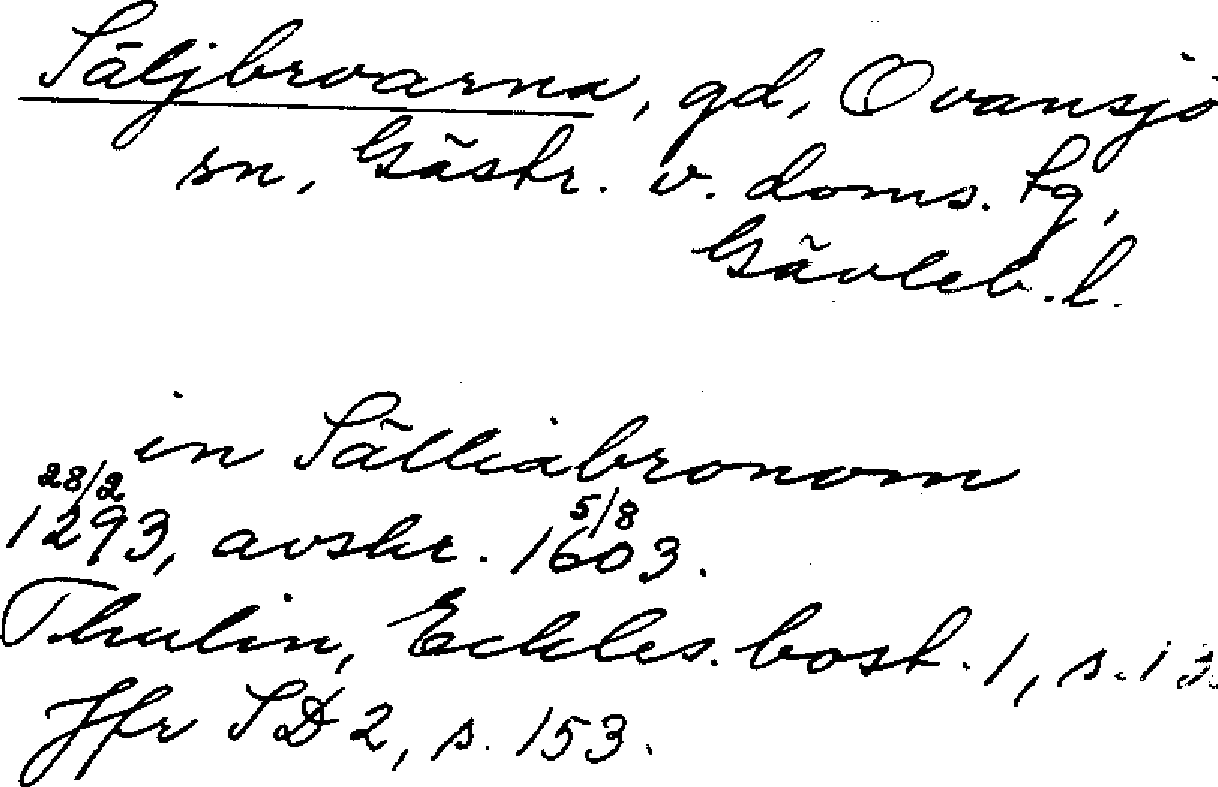 Säljbroarna, gd, Ovansjö
sn, Gästr. v. doms. tg,
Gävleb. l.
in Sälliabronom
28/2 5/8
1293, avskr. 1603.
Thulin, Eckles. bost. 1, s.
Jfr SD 2, s. 153.